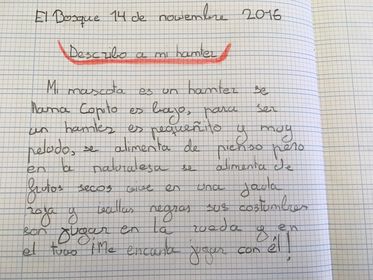 El Bosque 14 de noviembre 2016
Describo a mi hamter
Mi mascota es un hamter se
llama Copito es bajo, para ser
un hamter es pequeñito y muy
peludo, se alimenta de pienso pero
en la naturalesa se alimenta de
frutos secos vive en una jaula
roja y vallas negras sus costumbres
son jugar en la rueda y en
el tuvo ¡Me encanta jugar con él!